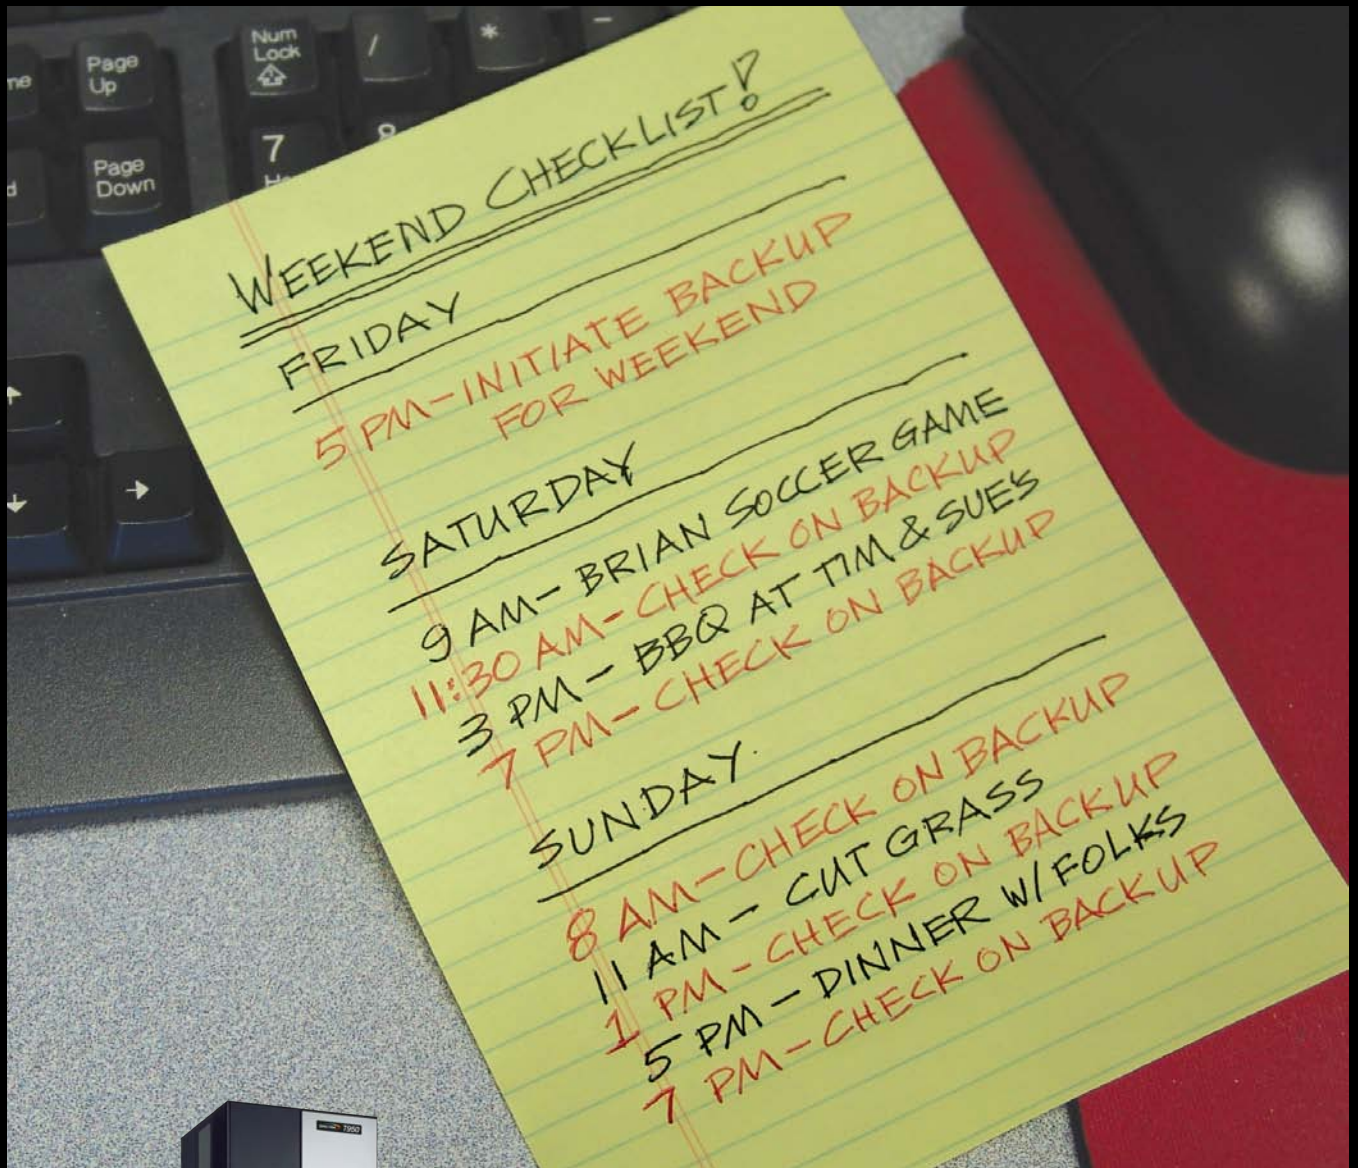 Page
Up
Num
Lock
/
*
-
Page
Down
7
8
WEEKEND CHECKLIST!
FRIDAY
5 PM-INITIATE BACKUP
FOR WEEKEND
SATURDAY
9 AM-BRIAN SOCCER GAME
11:30 AM-CHECK ON BACKUP
3 PM-BBQ AT TIM & SUE'S
7 PM-CHECK ON BACKUP
SUNDAY
8 AM-CHECK ON BACKUP
11 AM-CUT GRASS
1 PM-CHECK ON BACKUP
5 PM-DINNER W/FOLKS
7 PM-CHECK ON BACKUP
T950